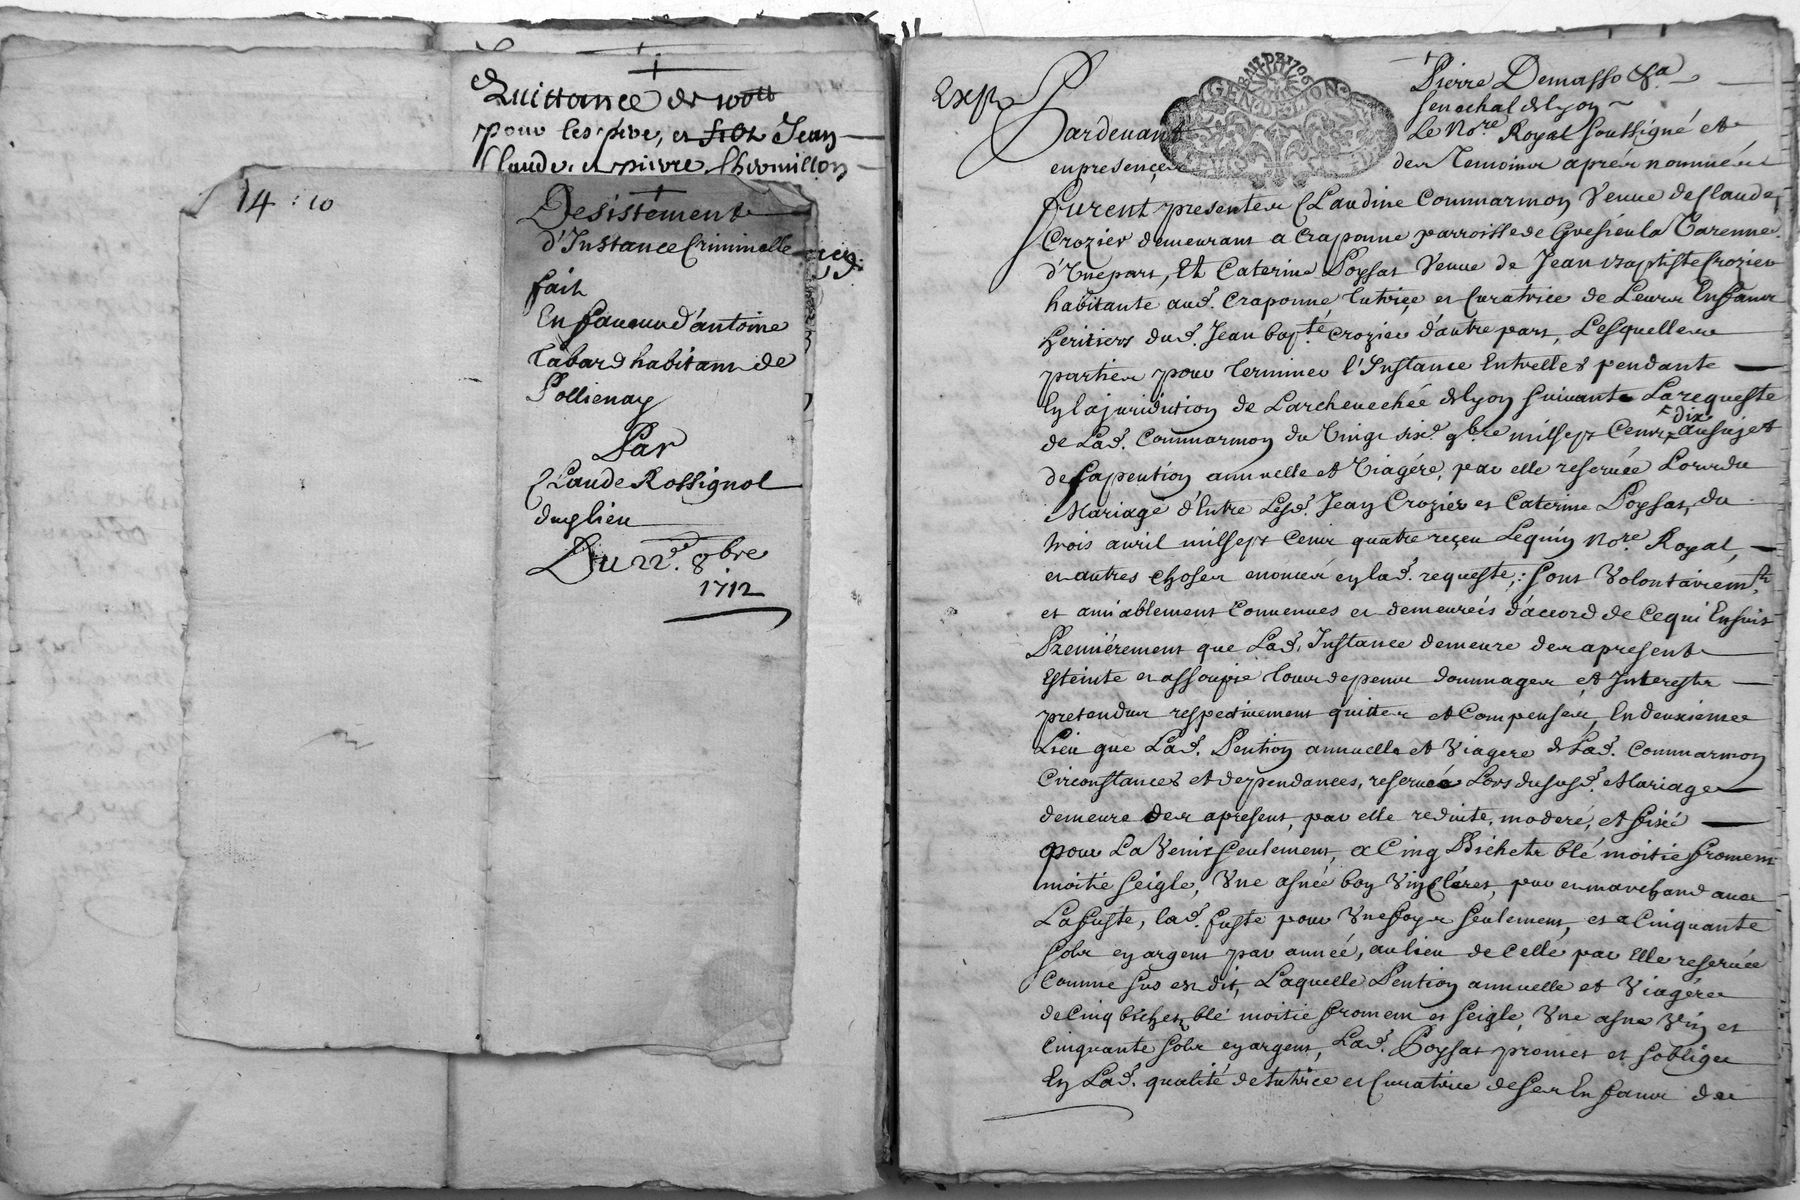 Quittance de 100tt
pour les pere, et filz Jean
Claude, et pierre Chermillon
14 : 10
Desistement
d'Instance Criminelle
fait
En faueur d'antoine
Tabard habitant de
Pollienay
Par
Claude Rossignol
dud. lieu
Du 22e. 8bre
1712
Expe
GEN. DE LYON
Pierre Demasso
senechal de lyon
Pardeuant Le Nore. Royal soussigné et
en presence des Temoins aprés nommés
furent presentes Claudine Commarmon Veuue de Claude
Crozier demeurant a Craponne parroisse de Gresieu la Varenne
d'Vne part, Et Caterine Poyssat Veuue de Jean Baptiste Crozier
habitante aud. Craponne, tutrice et Curatrice de Leurs Enfans
heritiers dud. Jean bapte. Crozier d'autre part, Lesquelles
parties pour terminer l'Instance Entrelles pendante
En la juridition de Larcheueché de lyon suiuant La requeste
de Lad. Commarmon du Vingt six. 9bre mil sept Cents dix au sujet
de sa pention annuelle et Viagére, par elle reseruée Lors du
Mariage d'Entre Lesd. Jean Crozier et Caterine Poyssat, du
trois auril mil sept Cents quatre reçeu Lequin Nore. Royal,
et autres choses enoncé en lad. requeste; sont Volontairemt.
et amiablement Conuenues et demeureés d'accord de Ce qui Ensuit
Premiérement que Lad. Instance demeure des apresent
Esteinte et assoupie tous depens dommages et Interests
pretendus respectiuement quittes et Compensés, En deuxiéme
Lieu que Lad. Pention annuelle et Viagere de Lad. Commarmon
Circonstances et dependances, reseruée Lors du susd. Mariage
demeure des apresent, par elle reduite, moderé, et fixé
pour La Venir seulement, a Cinq Bichets blé moitie froment
moitie seigle, Vne asnée bon Vin Cleret, pur et marchand auec
La fuste, lad. fuste pour Vne foys seulement, et a Cinquante
sols en argent par année, au lieu de Celle par Elle reseruée
Comme sus est dit, Laquelle Pention annuelle et Viagére
de Cinq bichets blé moitie froment et seigle, Vne asne Vin et
Cinquante sols en argent, Lad. Poyssat promet et s'oblige
En Lad. qualité de tutrice et Curatrice de Ses Enfans de